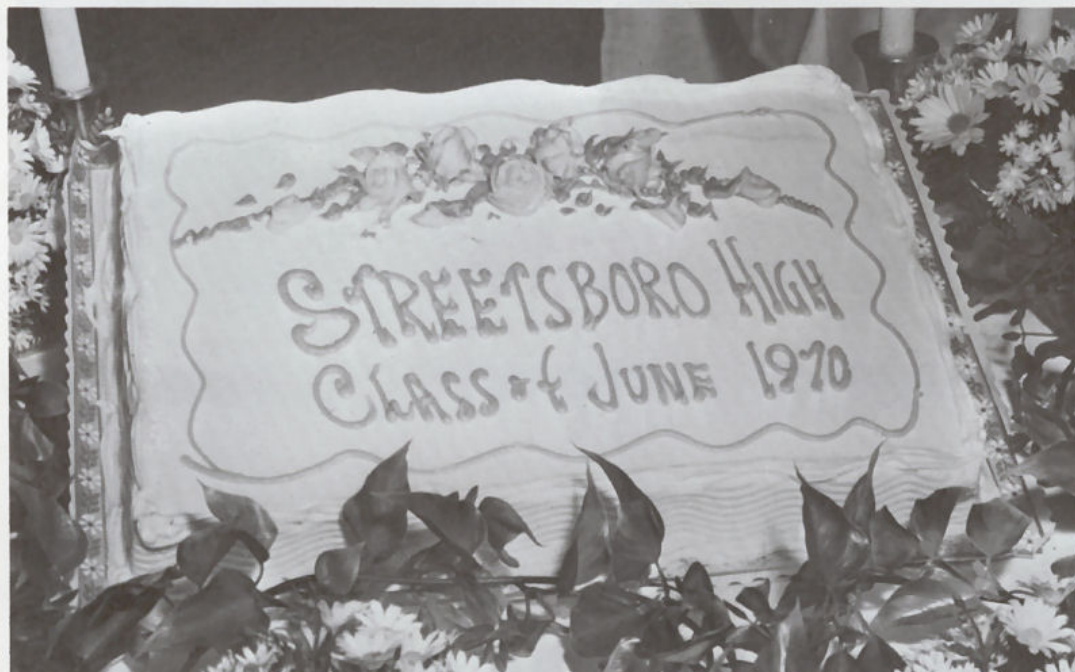 STREETSBORO HIGH
CLASS of JUNE 1970